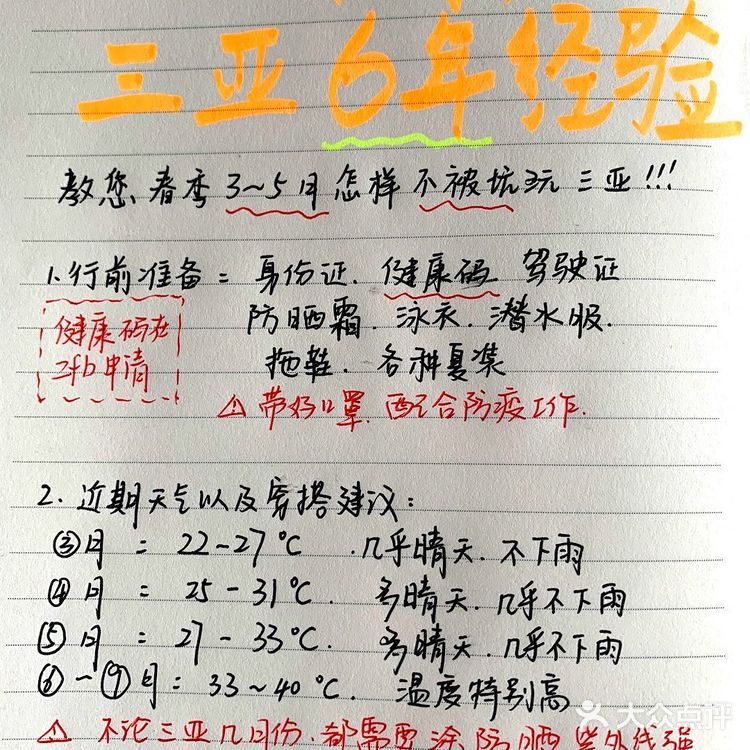 三亚6年经验
教您春季3~5月怎样不被坑玩三亚!!!
1.行前准备=身份证.健康码 驾驶证
防晒霜.泳衣.潜水服.
拖鞋.各种夏装
健康码在
zfb申请
⚠带好口罩.配合防疫工作.
2.近期天气以及穿搭建议:
③月=22-27℃.几乎晴天.不下雨
④月=25-31℃.多晴天.几乎不下雨
⑤月=27-33℃.多晴天.几乎不下雨
⑥-⑨月:33~40℃.温度特别高
⚠不论三亚几月份.都需要涂防晒紫外线强
大众点评